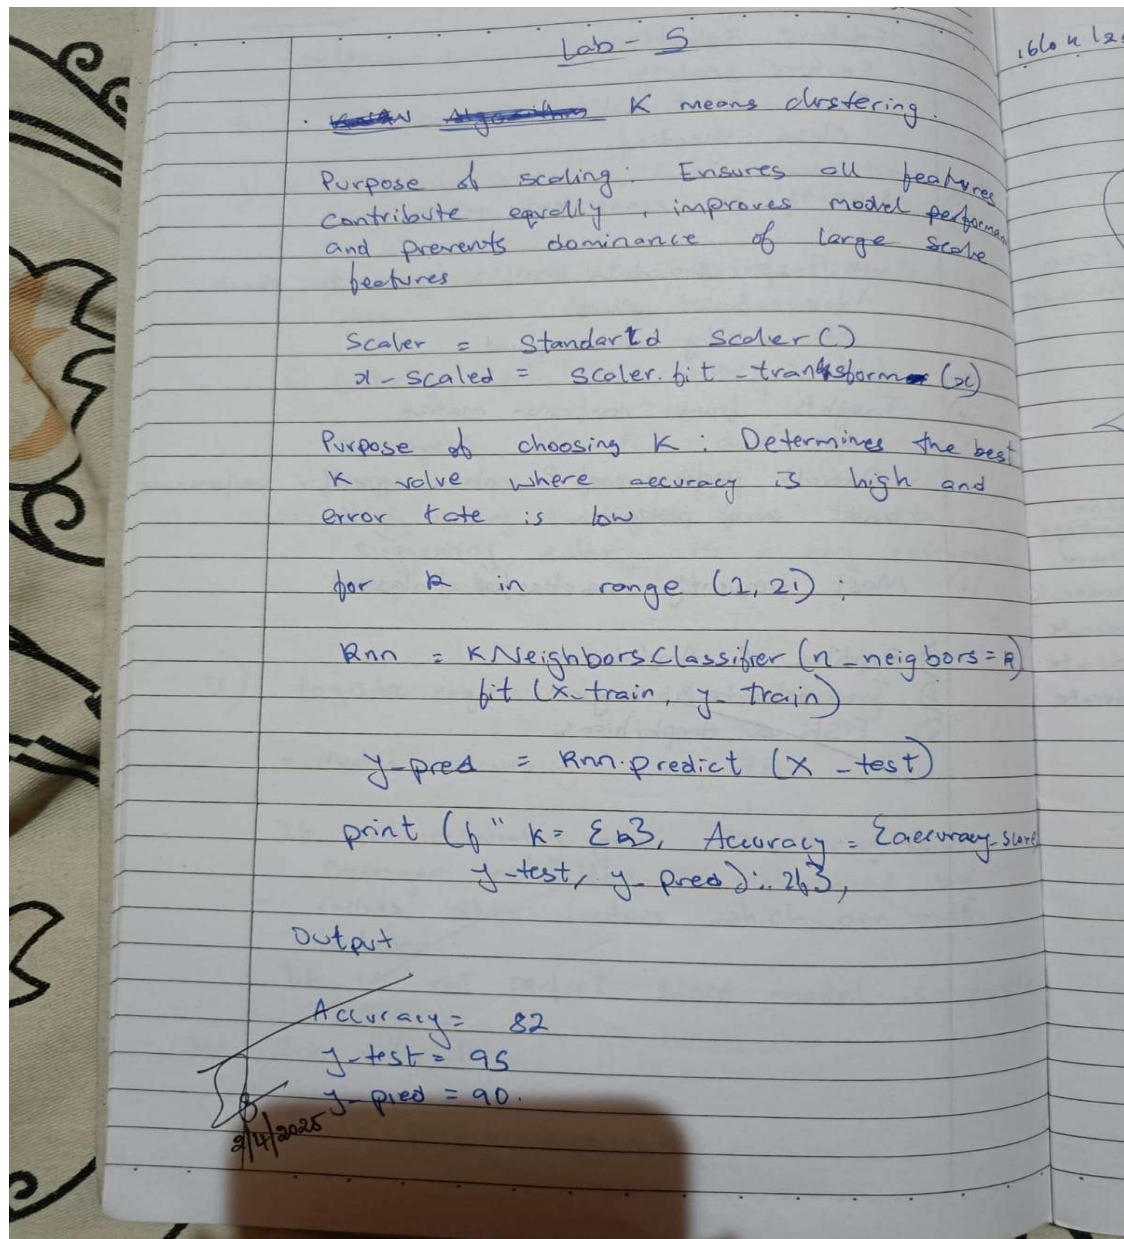 Lab - 5
K means clustering.
Purpose of scaling: Ensures all features
contribute equally, improves model performan
and prevents dominance of large scale
features
Scaler = Standard Scaler ()
x-scaled = scaler.fit-transform (x)
Purpose of choosing K: Determines the best
K value where accuracy is high and
error rate is low
for k in range (1, 21):
knn = KNeighborsClassifier (n-neigbors = k)
fit (x-train, y-train)
y-pred = knn.predict (X-test)
print (f" k= {k}, Accuracy = {accuracy-score
y-test, y-pred):.2f},
Output
Accuracy = 82
y-test = 95
y-pred = 90.
2/4/2025